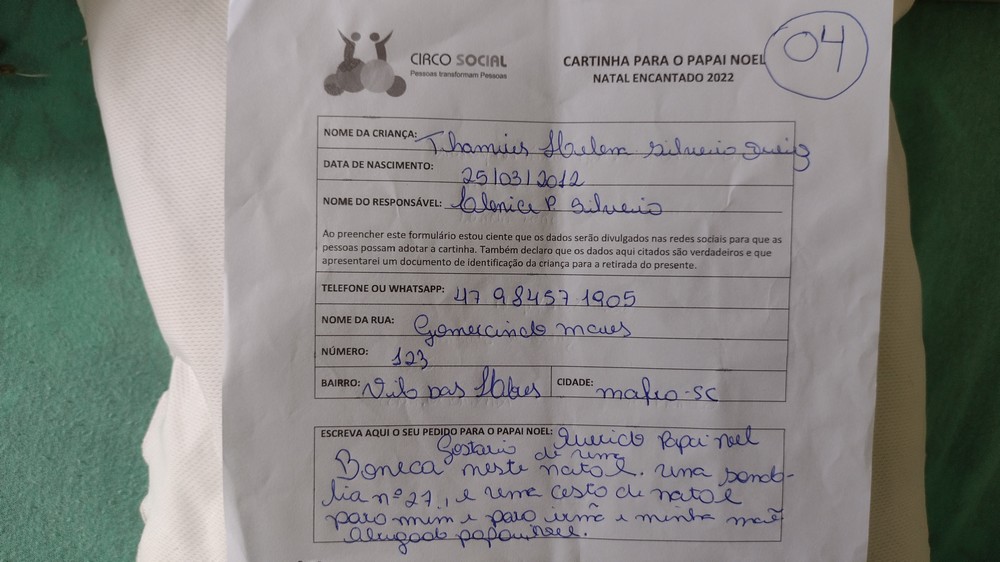 CIRCO SOCIAL
Pessoas transformam Pessoas
CARTINHA PARA O PAPAI NOEL
NATAL ENCANTADO 2022
04
NOME DA CRIANÇA: Helena Silverio
DATA DE NASCIMENTO: 25/03/2012
NOME DO RESPONSÁVEL: P. Silverio
Ao preencher este formulário estou ciente que os dados serão divulgados nas redes sociais para que as
pessoas possam adotar a cartinha. Também declaro que os dados aqui citados são verdadeiros e que
apresentarei um documento de identificação da criança para a retirada do presente.
TELEFONE OU WHATSAPP: 47 98457 1905
NOME DA RUA: Gomercindo maes
NÚMERO: 123
BAIRRO: Vila das CIDADE: mafra-SC
ESCREVA AQUI O SEU PEDIDO PARA O PAPAI NOEL: Querido Papai noel
Gostario de uma
Boneca neste natal. uma sanda-
lia nº 27., e uma cesto de natal
para mim e para irmã e minha mãe
obrigado papai noel.